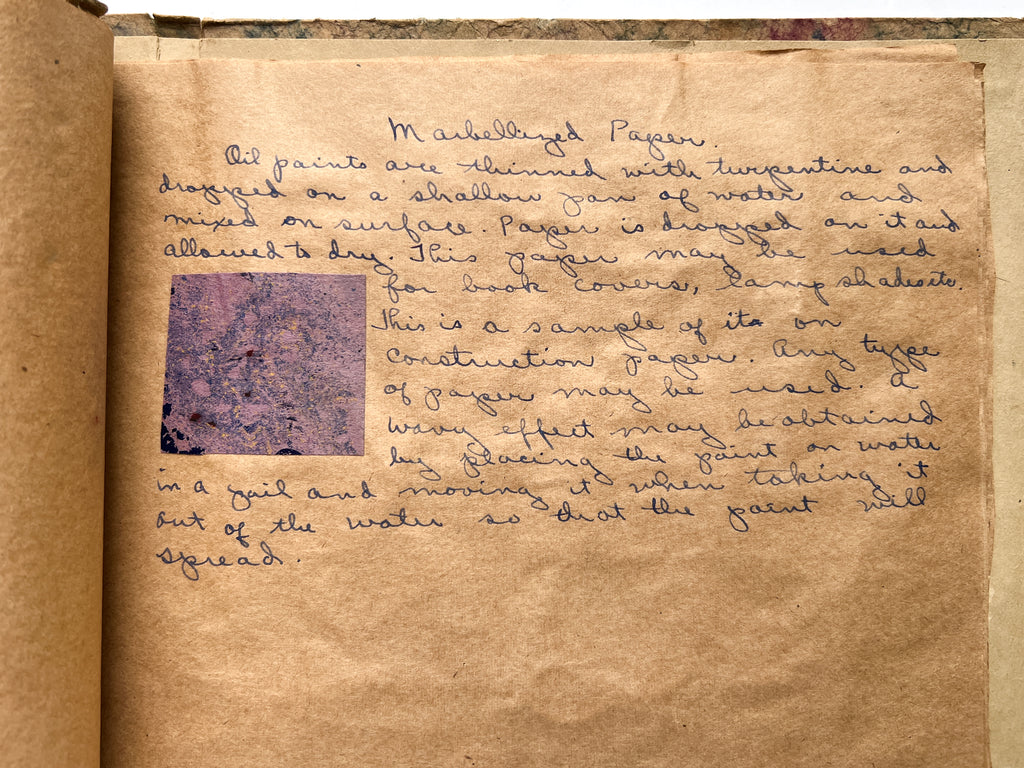 Marbellized Paper.
Oil paints are thinned with turpentine and
dropped on a shallow pan of water and
mixed on surface. Paper is dropped on it and
allowed to dry. This paper may be used
for book covers, lamp shades etc.
This is a sample of it on
construction paper. Any type
of paper may be used. A
wavy effect may be obtained
by placing the paint on water
in a pail and moving it when taking it
out of the water so that the paint will
spread.